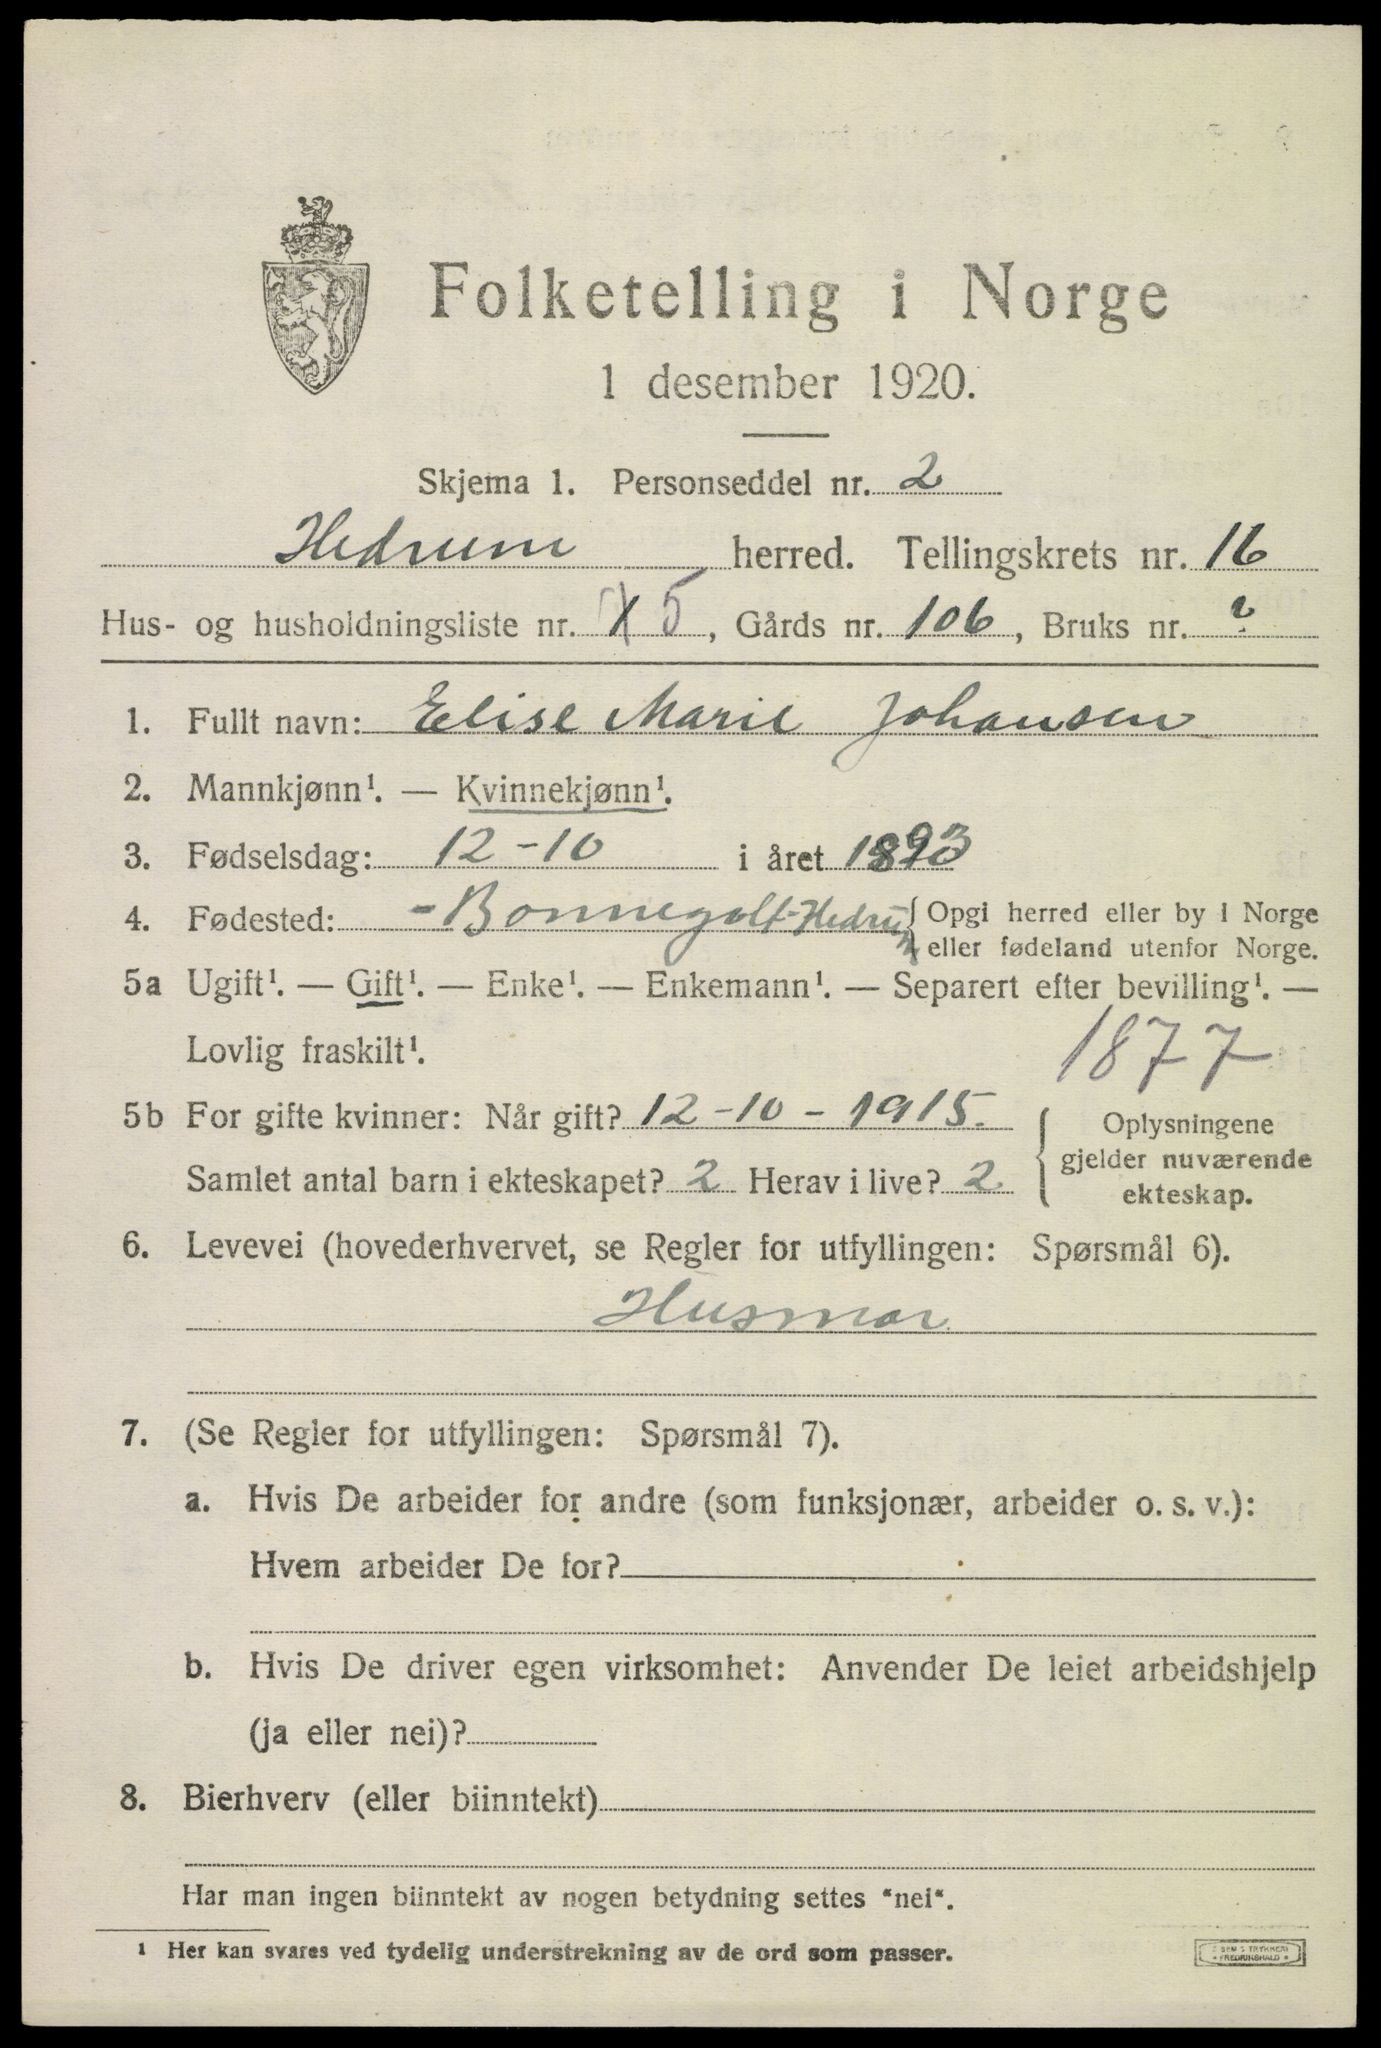 Folketelling i Norge
1 desember 1920.
Skjema 1. Personseddel nr. 2
Hedrum herred. Tellingskrets nr. 16
Hus- og husholdningsliste nr. 5, Gårds nr. 106, Bruks nr. ?
1. Fullt navn: Elise Marie Johansen
2. Mannkjønn¹. — Kvinnekjønn¹.
3. Fødselsdag: 12-10 i året 1893
4. Fødested: - Bonnegolt-Hedrum { Opgi herred eller by i Norge
eller fødeland utenfor Norge.
5a Ugift¹. — Gift¹. — Enke¹. — Enkemann¹. — Separert efter bevilling¹. —
Lovlig fraskilt¹.
1877
5b For gifte kvinner: Når gift? 12-10-1915.
Samlet antal barn i ekteskapet? 2 Herav i live? 2
{ Oplysningene
gjelder nuværende
ekteskap.
6. Levevei (hovederhvervet, se Regler for utfyllingen: Spørsmål 6).
Husmor
7. (Se Regler for utfyllingen: Spørsmål 7).
a. Hvis De arbeider for andre (som funksjonær, arbeider o. s. v.):
Hvem arbeider De for?
b. Hvis De driver egen virksomhet: Anvender De leiet arbeidshjelp
(ja eller nei)?
8. Bierhverv (eller biinntekt)
Har man ingen biinntekt av nogen betydning settes "nei".
¹ Her kan svares ved tydelig understrekning av de ord som passer.
TRYKKERI
FREDRIKSHALD